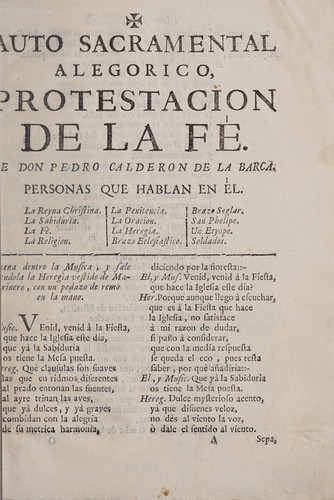 AUTO SACRAMENTAL
ALEGORICO,
PROTESTACION
DE LA FÉ.
DE DON PEDRO CALDERON DE LA BARCA.
PERSONAS QUE HABLAN EN ÈL.
La Reyna Christina.
La Sabiduria.
La Fè.
La Religion.
La Penitencia.
La Oracion.
La Heregia.
Brazo Eclesiastico.
Brazo Seglar.
San Phelipe.
Un Etyope.
Soldados.
uena dentro la Musica, y sale
ondola la Heregia vestido de Ma-
rinero, con un pedazo de remo
en la mano.
Music. VEnid, venid à la Fiesta,
que hace la Iglesia este dia,
que yà la Sabiduria
os tiene la Mesa puesta.
Hereg. Què clausulas son suaves
las que en ridmos diferentes
al prado entonan las fuentes,
al ayre trinan las aves,
que yà dulces, y yà graves
combidan con la alegria
de su metrica harmonia,
diciendo por la floresta::-
El, y Music. Venid, venid à la Fiesta,
que hace la Iglesia este dia?
Her. Porque aunque llego à escuchar,
que es à la Fiesta que hace
la Iglesia, no satisface
à mi razon de dudar,
si passo à considerar,
que con la media respuesta
se queda el eco, pues resta
saber, por què añadiria::-
El, y Music. Que yà la Sabiduria
os tiene la Mesa puesta.
Hereg. Dulce mysterioso acento,
yà que dissuenes veloz,
no dès al viento la voz,
ò dale el sentido al viento.
A
Sepa,